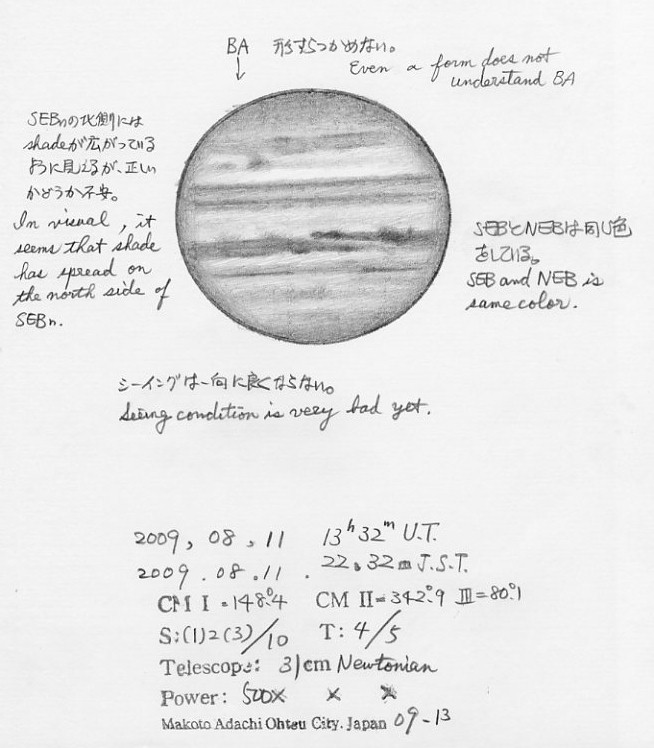 BA 形すらつかめない。
Even a form does not
understand BA
SEBnの北側には
shadeが広がっている
ように見えるが、正しい
かどうか不安。
In visual, it
seems that shade
has spread on
the north side of
SEBn.
SEBとNEBは同じ色
をしている。
SEB and NEB is
same color.
シーイングは一向に良くならない。
Seeing condition is very bad yet.
2009, 08, 11 13h 32m U.T.
2009. 08. 11. 22h 32m J.S.T.
CM I = 148.°4 CM II = 342.°9 III = 80.°1
S:(1)2(3)/10 T: 4/5
Telescope: 31cm Newtonian
Power: 500× × ×
Makoto Adachi Ohtsu City. Japan 09-13